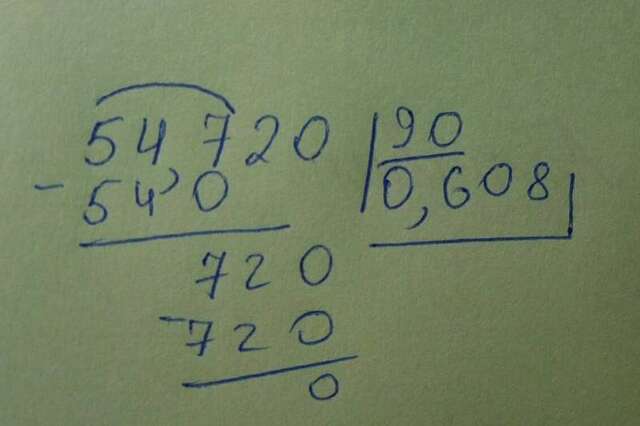 54,720 90
- 540 0,608
720
- 720
0